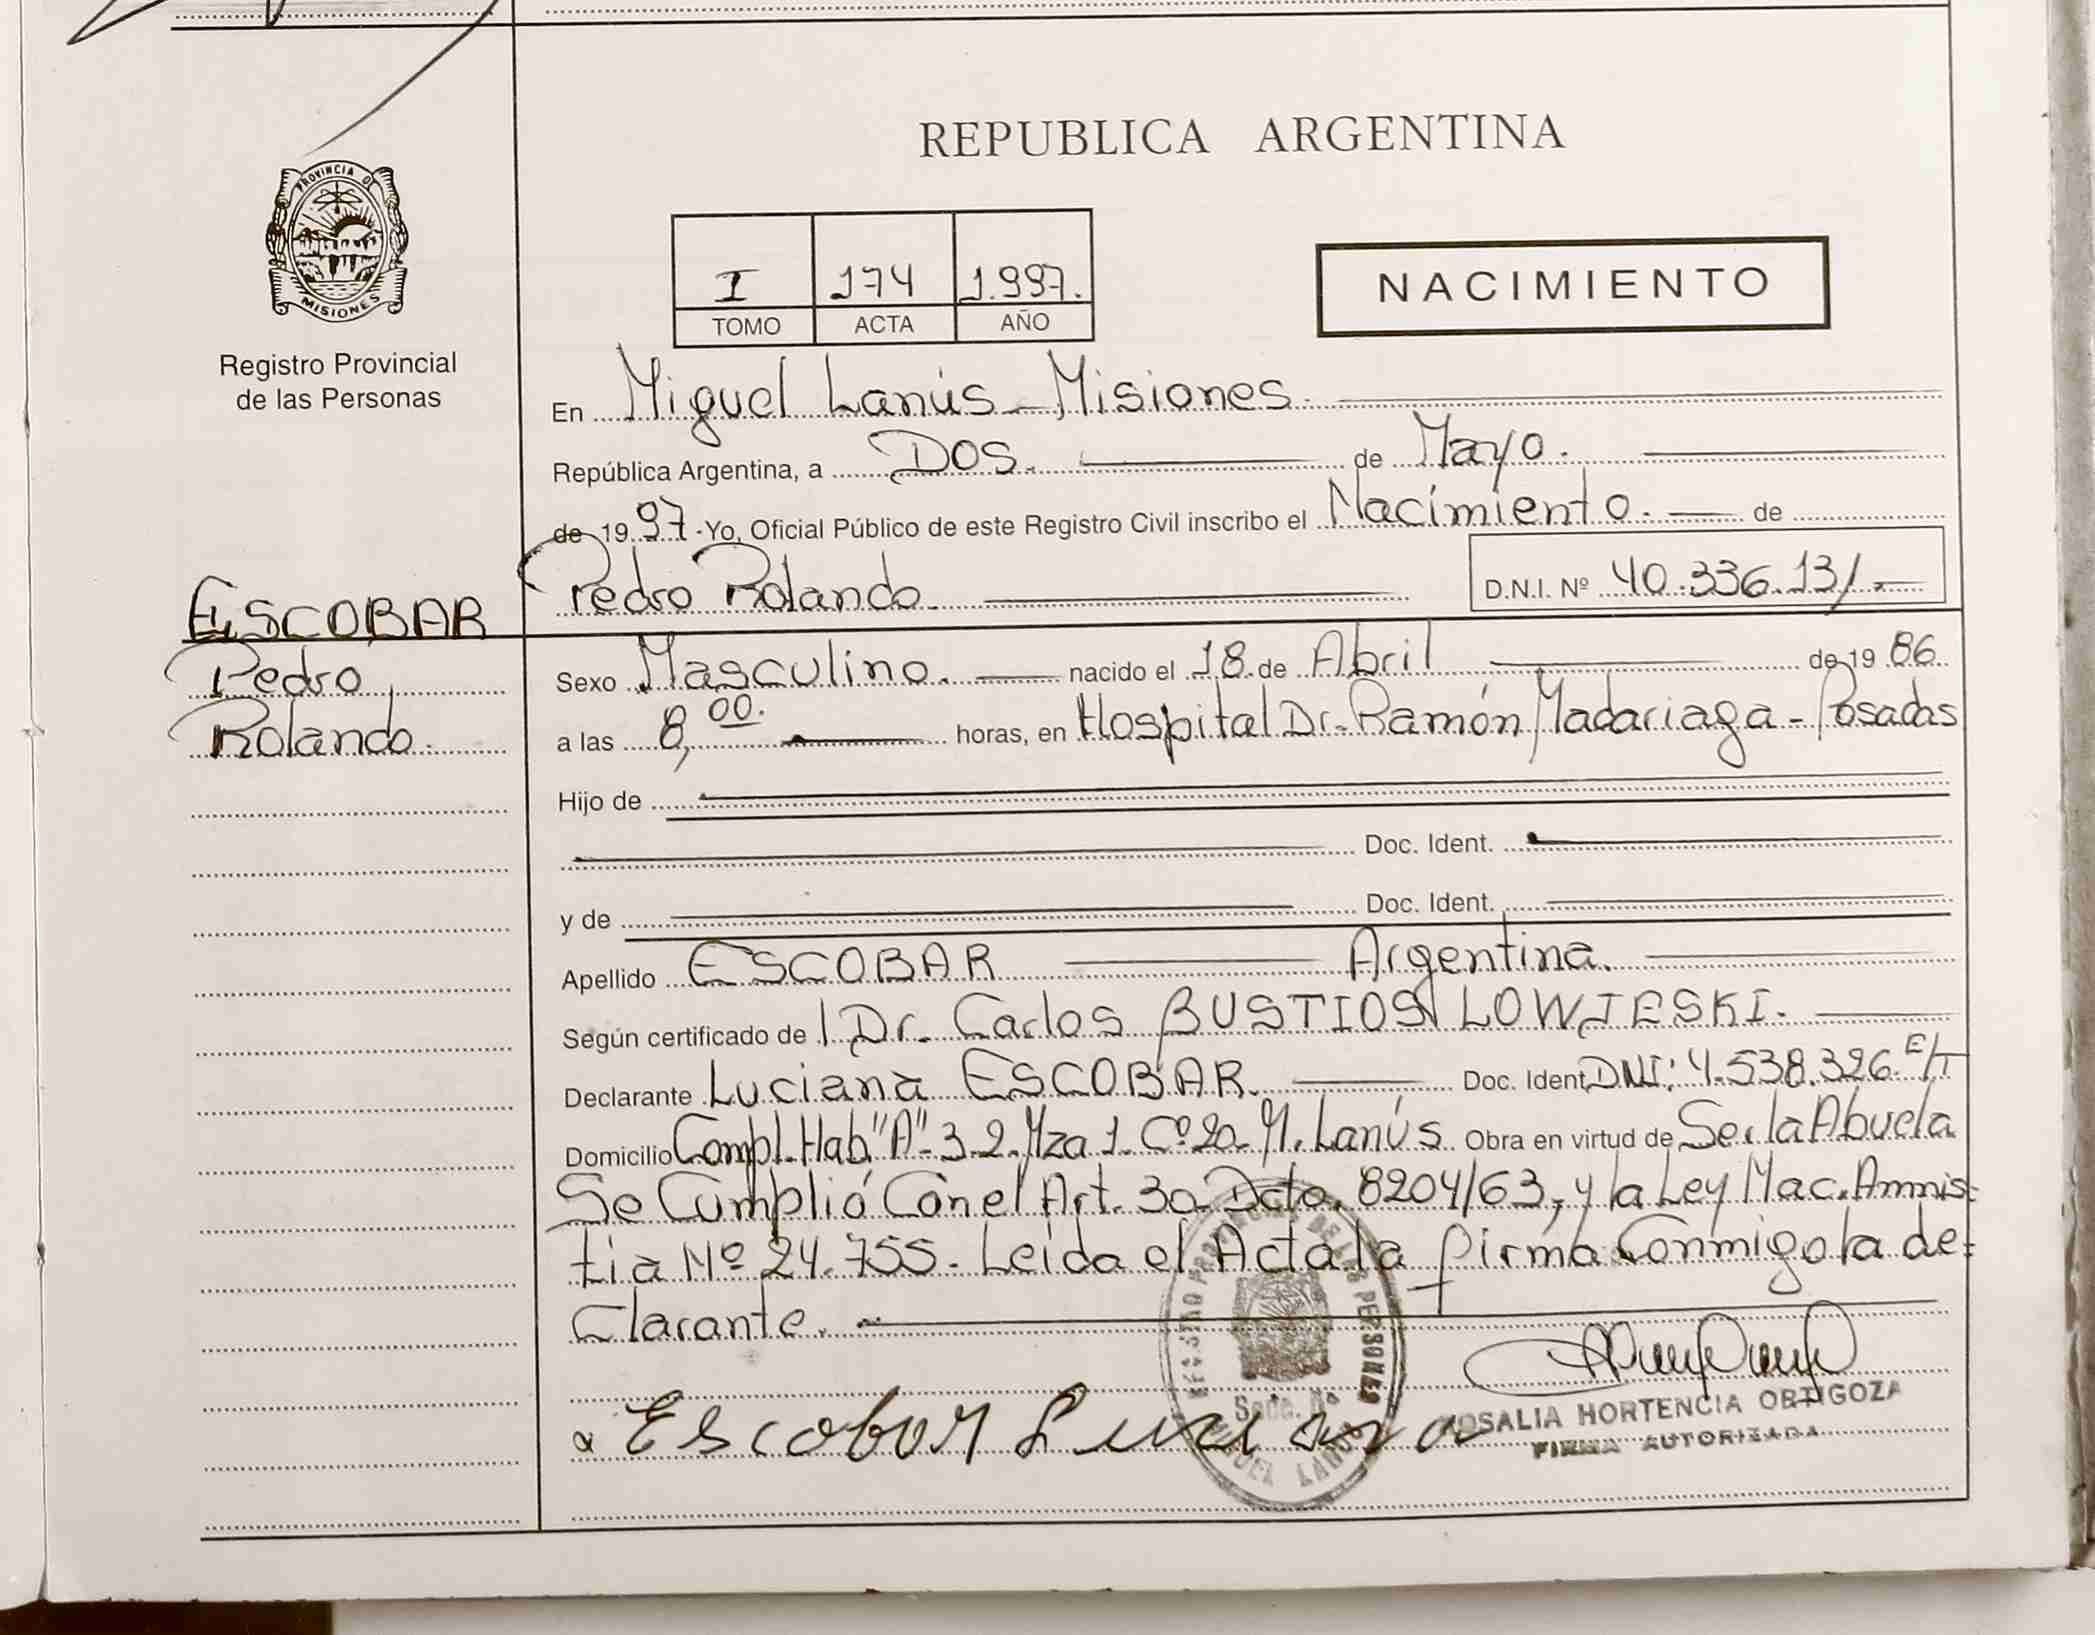 REPUBLICA ARGENTINA
PROVINCIA DE
MISIONES
Registro Provincial
de las Personas
I 174 1.997.
TOMO ACTA AÑO
NACIMIENTO
En Miguel Lanús - Misiones.
República Argentina, a DOS. de Mayo.
de 1997 - Yo, Oficial Público de este Registro Civil inscribo el Nacimiento. de
Pedro Rolando. D.N.I. Nº 40.336.131.-
ESCOBAR
Pedro
Rolando.
Sexo Masculino. nacido el 18 de Abril de 19 86
a las 8,00. horas, en Hospital Dr. Ramón Madariaga - Posadas
Hijo de
Doc. Ident.
y de Doc. Ident.
Apellido ESCOBAR Argentina.
Según certificado de Dr. Carlos BUSTIOS LOWJESKI.
Declarante Luciana ESCOBAR. Doc. Ident. DNI: 4.538.326. E/T
Domicilio Compl. Hab "A" 32. Mza 1. Cº 20. M. Lanús. Obra en virtud de Ser la Abuela
Se Cumplió Con el Art. 30 Dcto. 8204/63, y la Ley Nac. Amnis-
tia Nº 24.755. Leida el Acta la firma Conmigo la de-
Clarante.
Escobar Luciana
REGISTRO PROVINCIAL DE LAS PERSONAS
MIGUEL LANUS
ROSALIA HORTENCIA ORTIGOZA
FIRMA AUTORIZADA